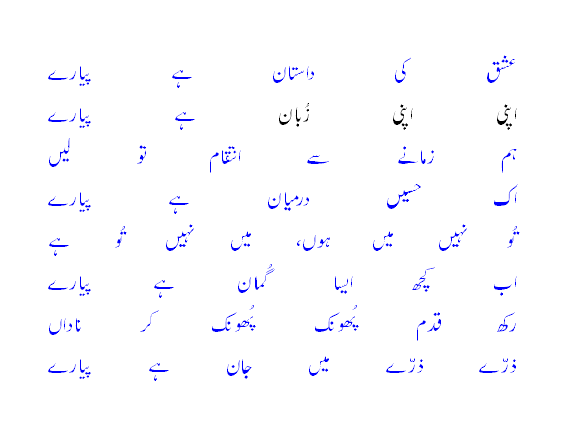 عشق کی داستان ہے پیارے
اپنی اپنی زُبان ہے پیارے
ہم زمانے سے انتقام تو لیں
اک حسیں درمیان ہے پیارے
تُو نہیں میں ہوں، میں نہیں تُو ہے
اب کچھ ایسا گُمان ہے پیارے
رکھ قدم پُھونک پُھونک کر ناداں
ذرّے ذرّے میں جان ہے پیارے